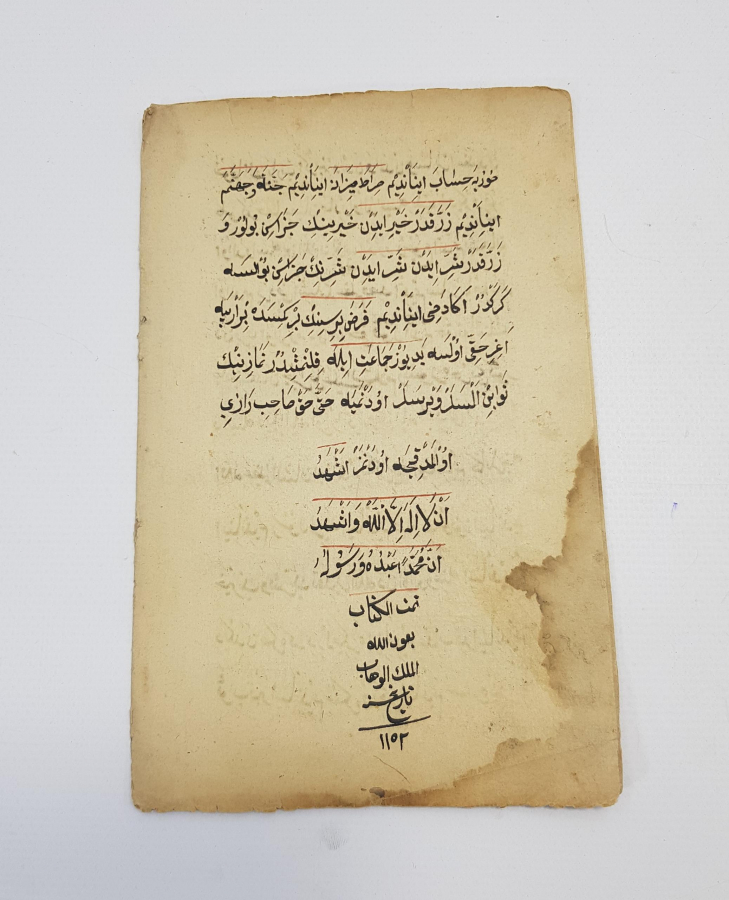 حساب اینأندیم صراط میزان اینأندیم جنّة وجهنّم
اینأندیم زرّ قدر خیر ایدن خیرینك جزاسن بولور و
زرّ قدر شرّ ایدن شرّ ایدن شرّنك جزاسن بولسه
كركدر اكا دخی اینأندیم فرض برسنك بركمسده
حقّی اولسه یدیوز جماعت ایله قلنمشدر نمازینك
ثوابن السلر ویرسلر اودنمیه حتّی حق صاحب رازی
اولمدقجه اودنمز اشهد
ان لا اله الا الله واشهد
انّ محمّدًا عبده ورسوله
تمت الكتاب
بعون الله
الملك الوهاب
١١٥٢